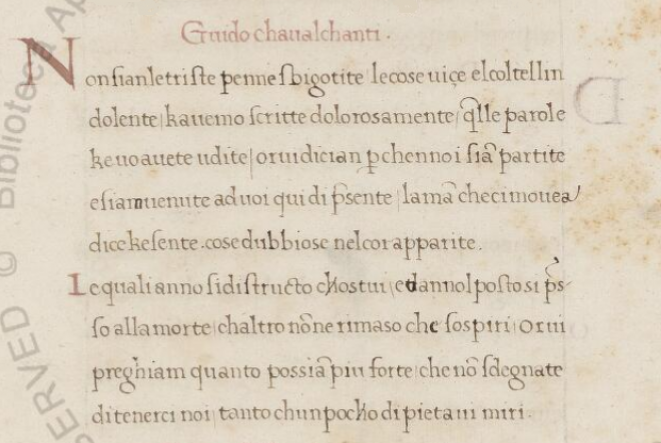 Guido chaualchanti.
Non sian le triste penne sbigotite le cose uiçe el coltellin
dolente | kauemo scritte dolorosamente | q̃lle parole
ke uoi auete udite | or ui dician p̱che nnoi siã partite
e siam uenute ad uoi qui di p̃sente | la mã che ci mouea
dice ke sente. cose dubbiose nel cor apparite.
Le quali anno si distructo chostui | ed annol posto si p̃s
so alla morte | ch altro nõ ne rimaso che sospiri | Or ui
preghiam quanto possiã piu forte | che nõ sdegnate
di tenerci noi | tanto ch un pocho di pieta ui miri.
D